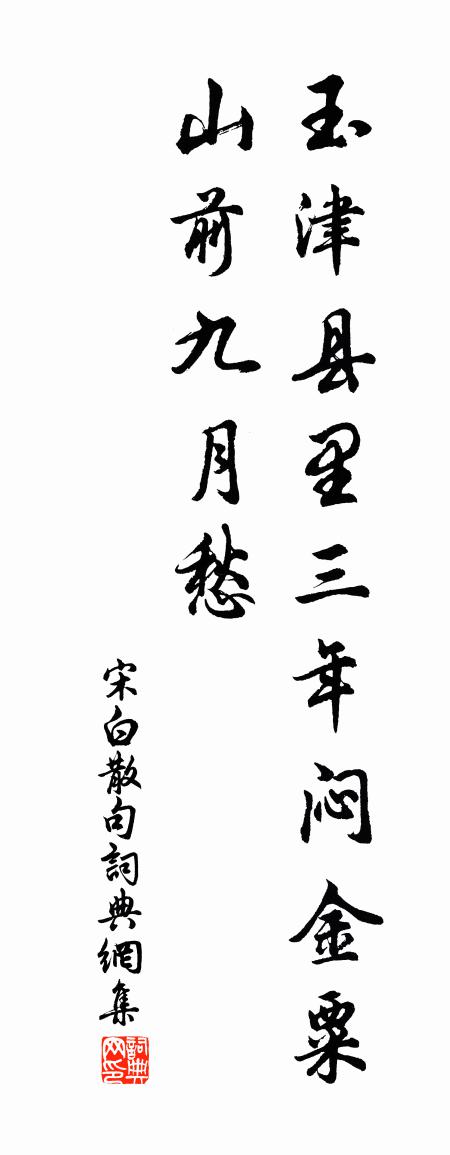 玉津县里三年闷金粟
山前九月愁
宋白散句詞典網集
詞典网印